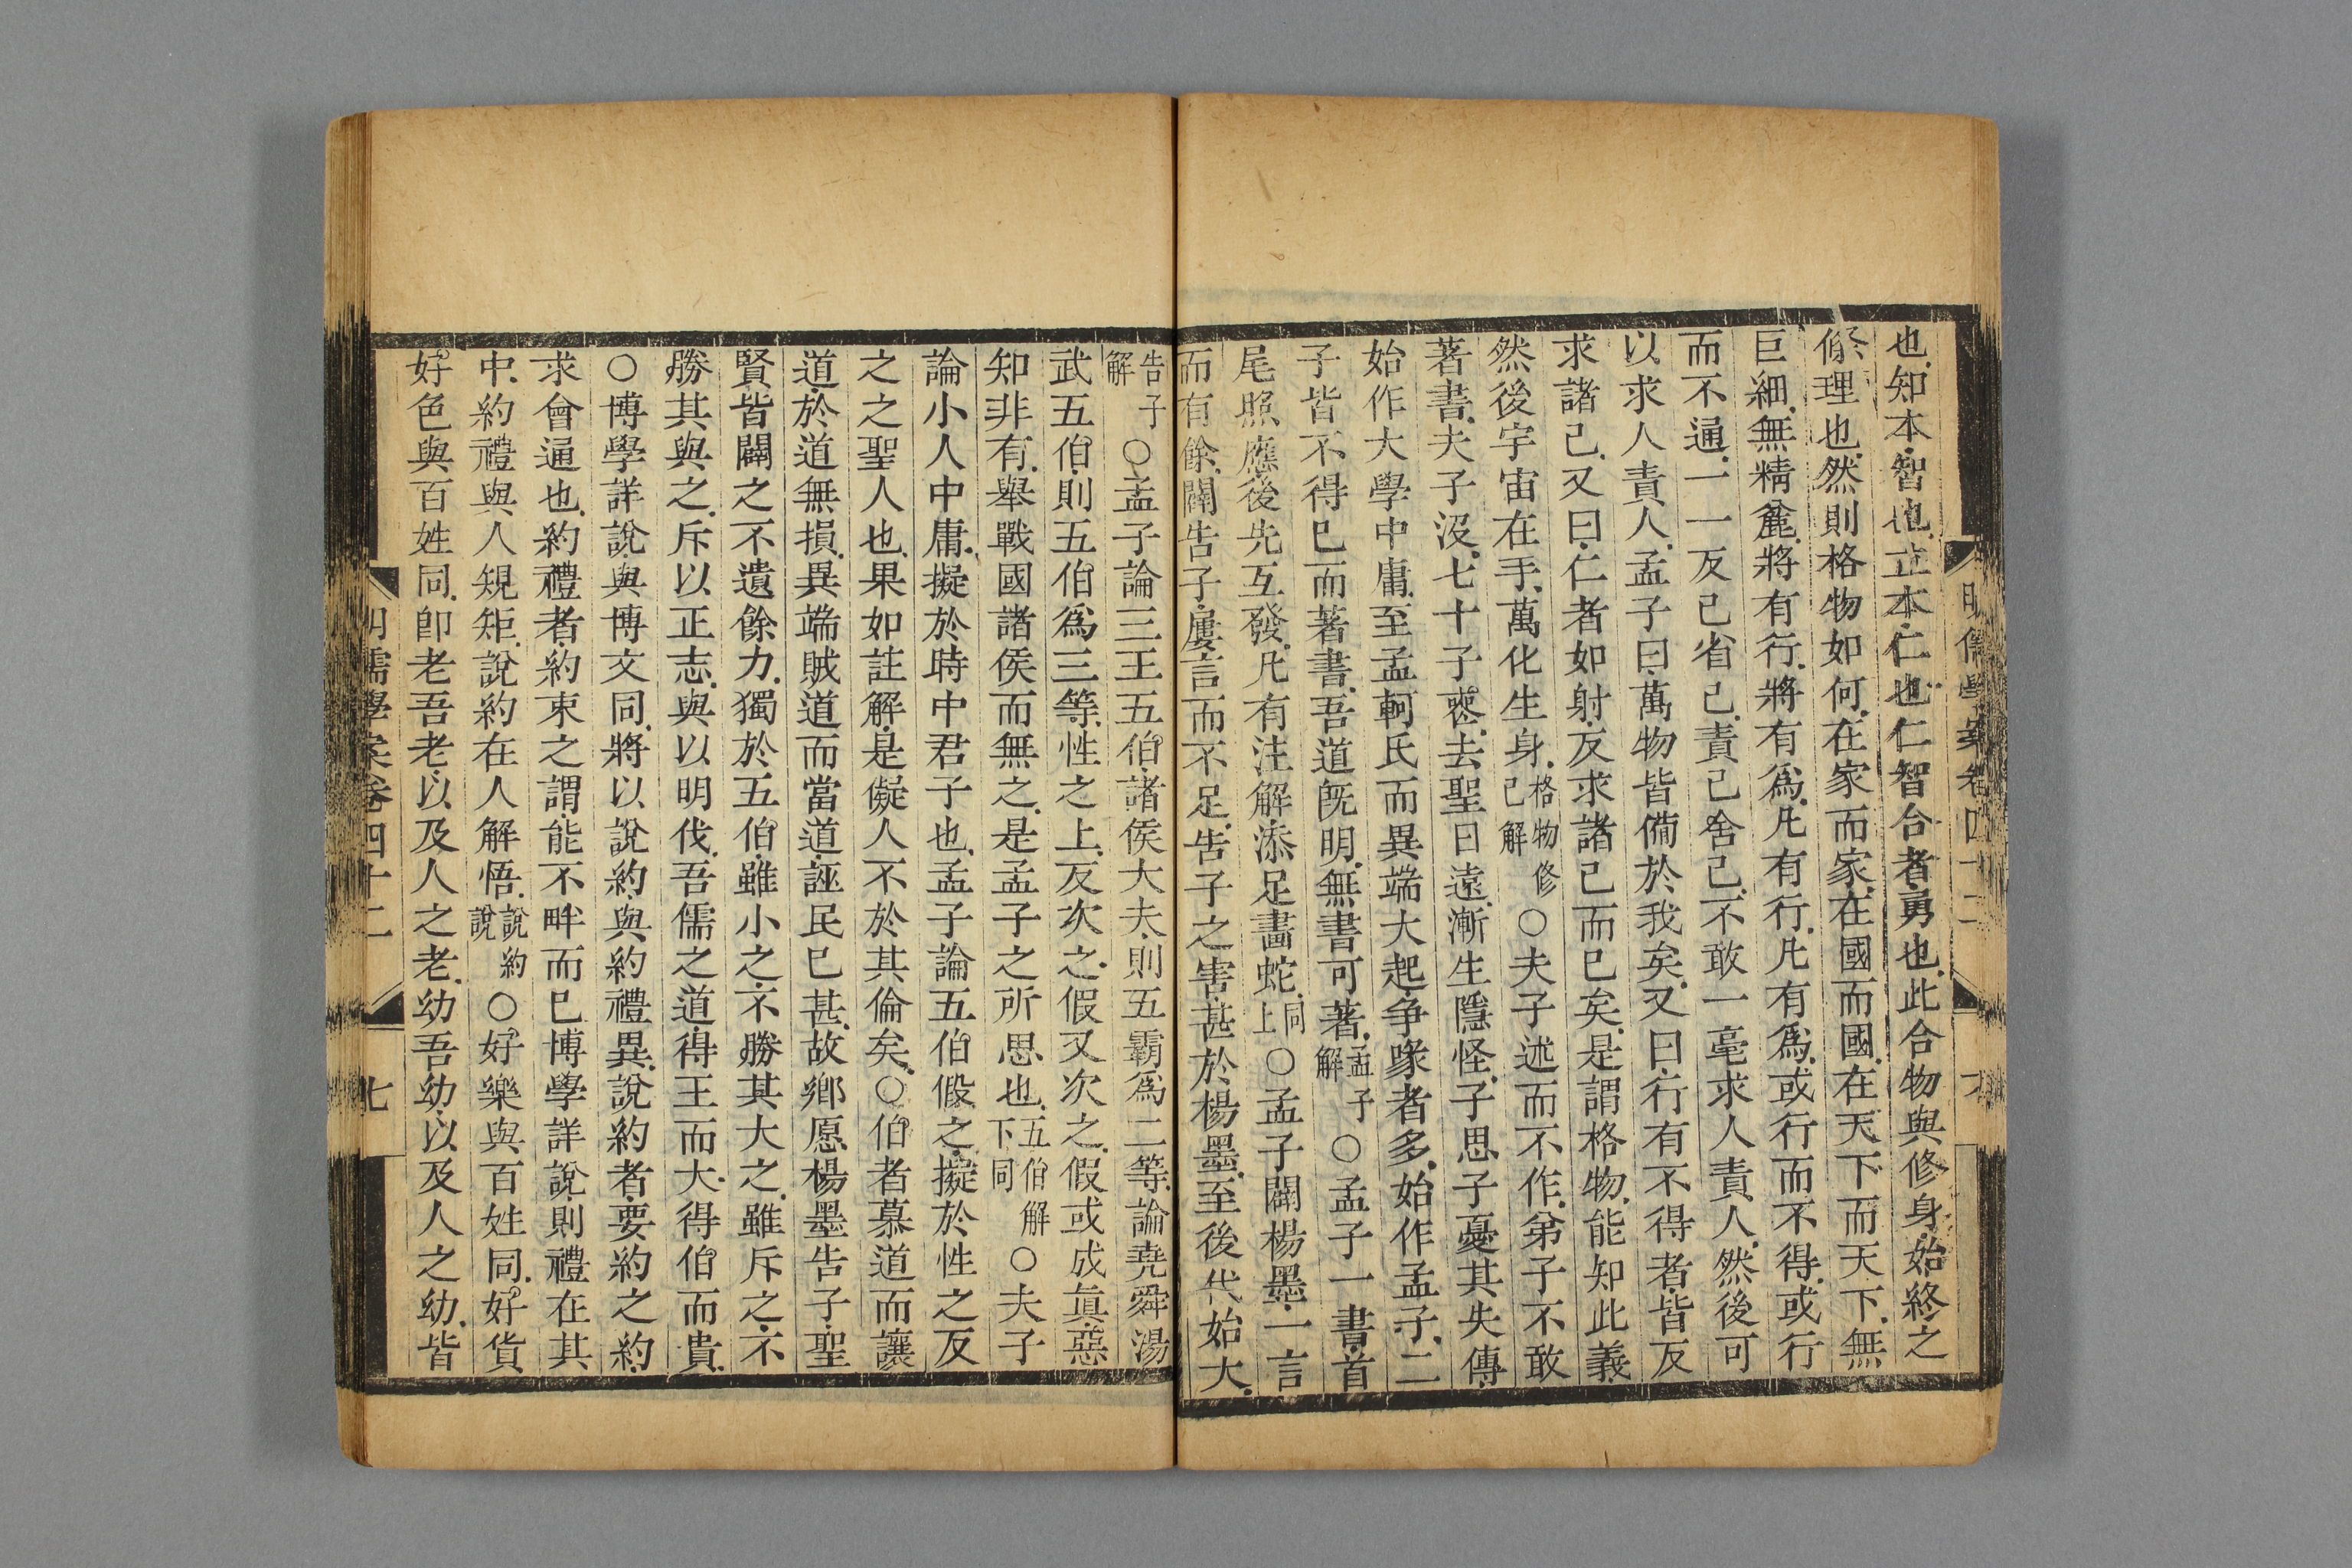 明儒學案卷四十二
也知本智也立本仁也仁智合者勇也此合物與修身始終之
條理也然則格物如何在家而家在國而國在天下而天下無
巨細無精麄將有行將有爲凡有行凡有爲或行而不得或行
而不通一一反己省己責己舍己不敢一毫求人責人然後可
以求人責人孟子曰萬物皆備於我矣又曰行有不得者皆反
求諸己又曰仁者如射反求諸己而已矣是謂格物能知此義
然後宇宙在手萬化生身格物修己解○夫子述而不作弟子不敢
著書夫子沒七十子喪去聖日遠漸生隱怪子思子憂其失傳
始作大學中庸至孟軻氏而異端大起爭喙者多始作孟子二
子皆不得已而著書吾道旣明無書可著孟子解○孟子一書首
尾照應後先互發凡有注解添足畫蛇同上○孟子闢楊墨一言
而有餘闢告子屢言而不足告子之害甚於楊墨至後代始大
告子解○孟子論三王五伯諸侯大夫則五霸爲二等論堯舜湯
武五伯則五伯爲三等性之上反次之假又次之假或成眞惡
知非有舉戰國諸侯而無之是孟子之所思也五伯解下同○夫子
論小人中庸擬於時中君子也孟子論五伯假之擬於性之反
之之聖人也果如註解是儗人不於其倫矣○伯者慕道而讓
道於道無損異端賊道而當道誣民已甚故鄉愿楊墨告子聖
賢皆闢之不遺餘力獨於五伯雖小之不勝其大之雖斥之不
勝其與之斥以正志與以明伐吾儒之道得王而大得伯而貴
○博學詳說與博文同將以說約與約禮異說約者要約之約
求會通也約禮者約束之謂能不畔而已博學詳說則禮在其
中約禮與人規矩說約在人解悟說約說○好樂與百姓同好貨
好色與百姓同卽老吾老以及人之老幼吾幼以及人之幼皆
明儒學案卷四十二
七